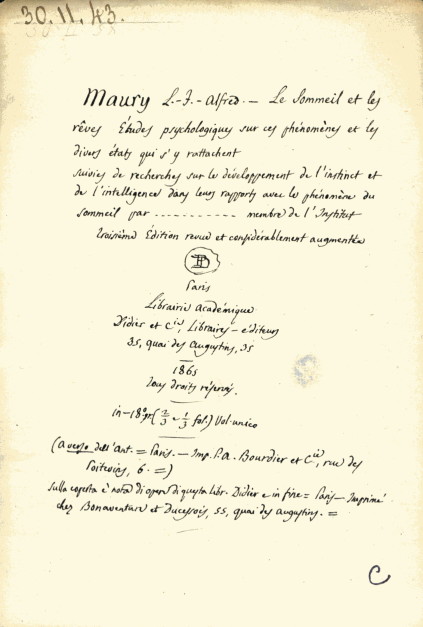 30.11.43.
Maury L.-F.-Alfred. — Le Sommeil et les
rêves Études psychologiques sur ces phénomènes et les
divers états qui s'y rattachent
suivies de recherches sur le développement de l'instinct et
de l'intelligence dans leurs rapports avec le phénomène du
sommeil par ........... membre de l'Institut
troisième Édition revue et considérablement augmentée
Paris
Librairie académique
Didier et Cie, Libraires-éditeurs
35, quai des Augustins, 35
1865
Tous droits réservés.
in-18º (2/3 e 1/3 fol.) Vol. unico
(a verso dell'Ant. = Paris. — Imp. P.A. Bourdier et Cie, rue des
Poitevins, 6. =)
Sulla coperta è nota di opere di questa Libr. Didier e in fine = Paris — Imprimé
chez Bonaventure et Ducessois, 55, quai des Augustins. =
C